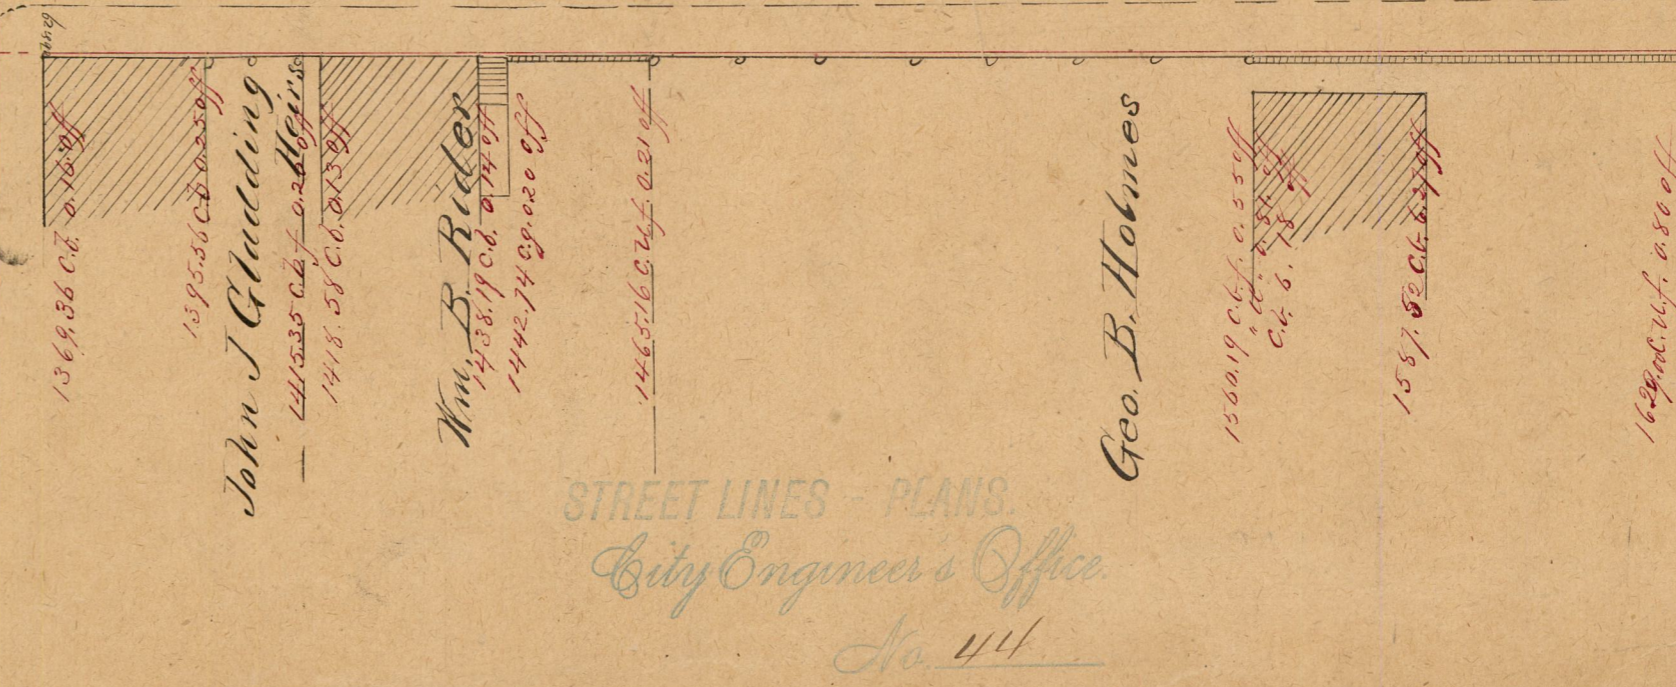 1369.36 C.b. 0.16 off
1395.56 C.b 0.25 off
John J Gladding
Heirs
1415.35 C.b.f 0.26 off
1418.58 C.b. 0.13 off
Wm. B. Rider
1438.19 C.b. 0.14 off
1442.74 C.g. 0.20 off
1465.16 C.U.f. 0.21 off
Geo. B. Holmes
1560.19 C.b.f. 0.55 off
" U " 0.51 off
C.b. 6.18 off
1587.52 C.b. 6.27 off
1629. C.U.f. 0.80 off
STREET LINES - PLANS.
City Engineer's Office.
No. 44